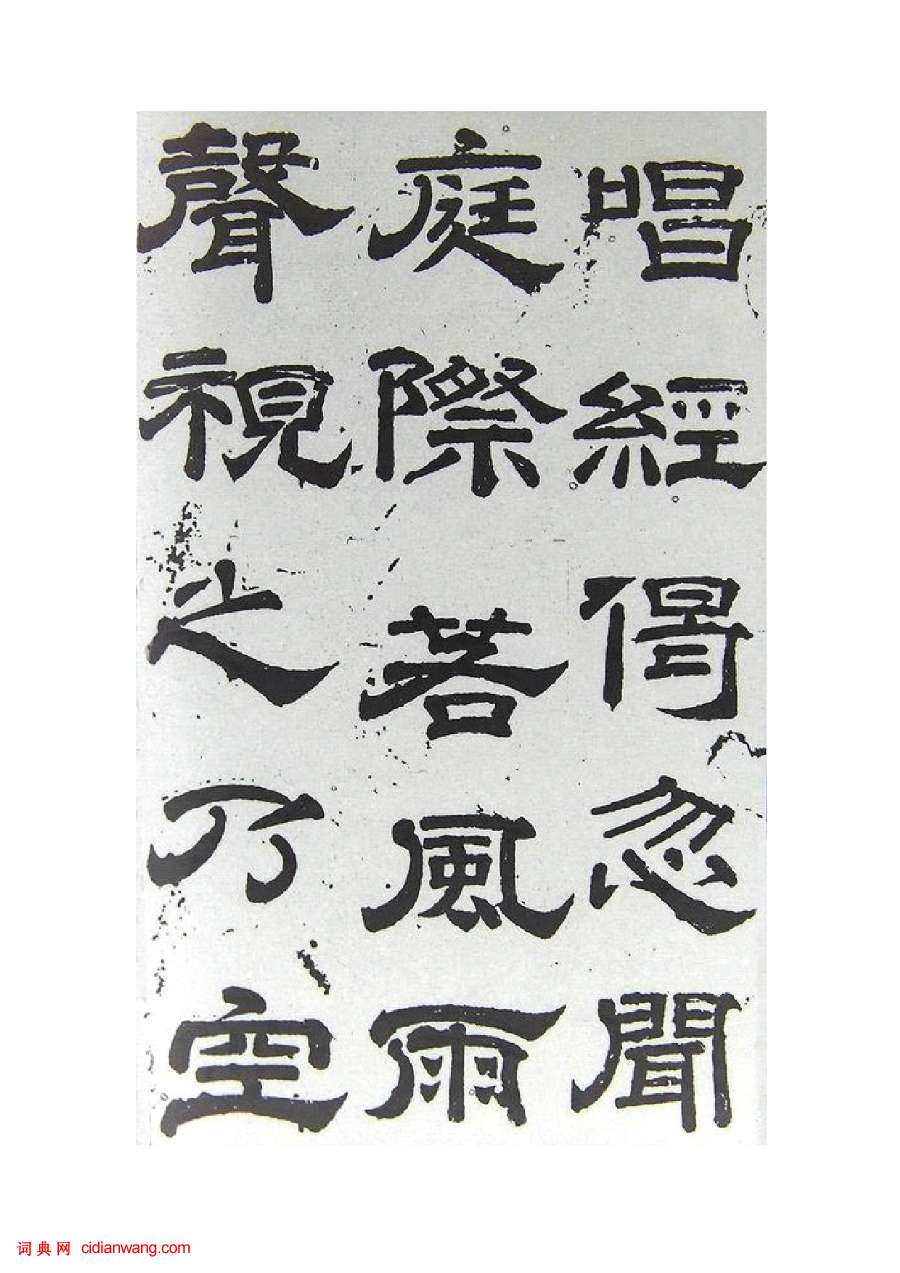 唱經偈忽聞
庭際若風雨
聲視之乃空
词典网 cidianwang.com